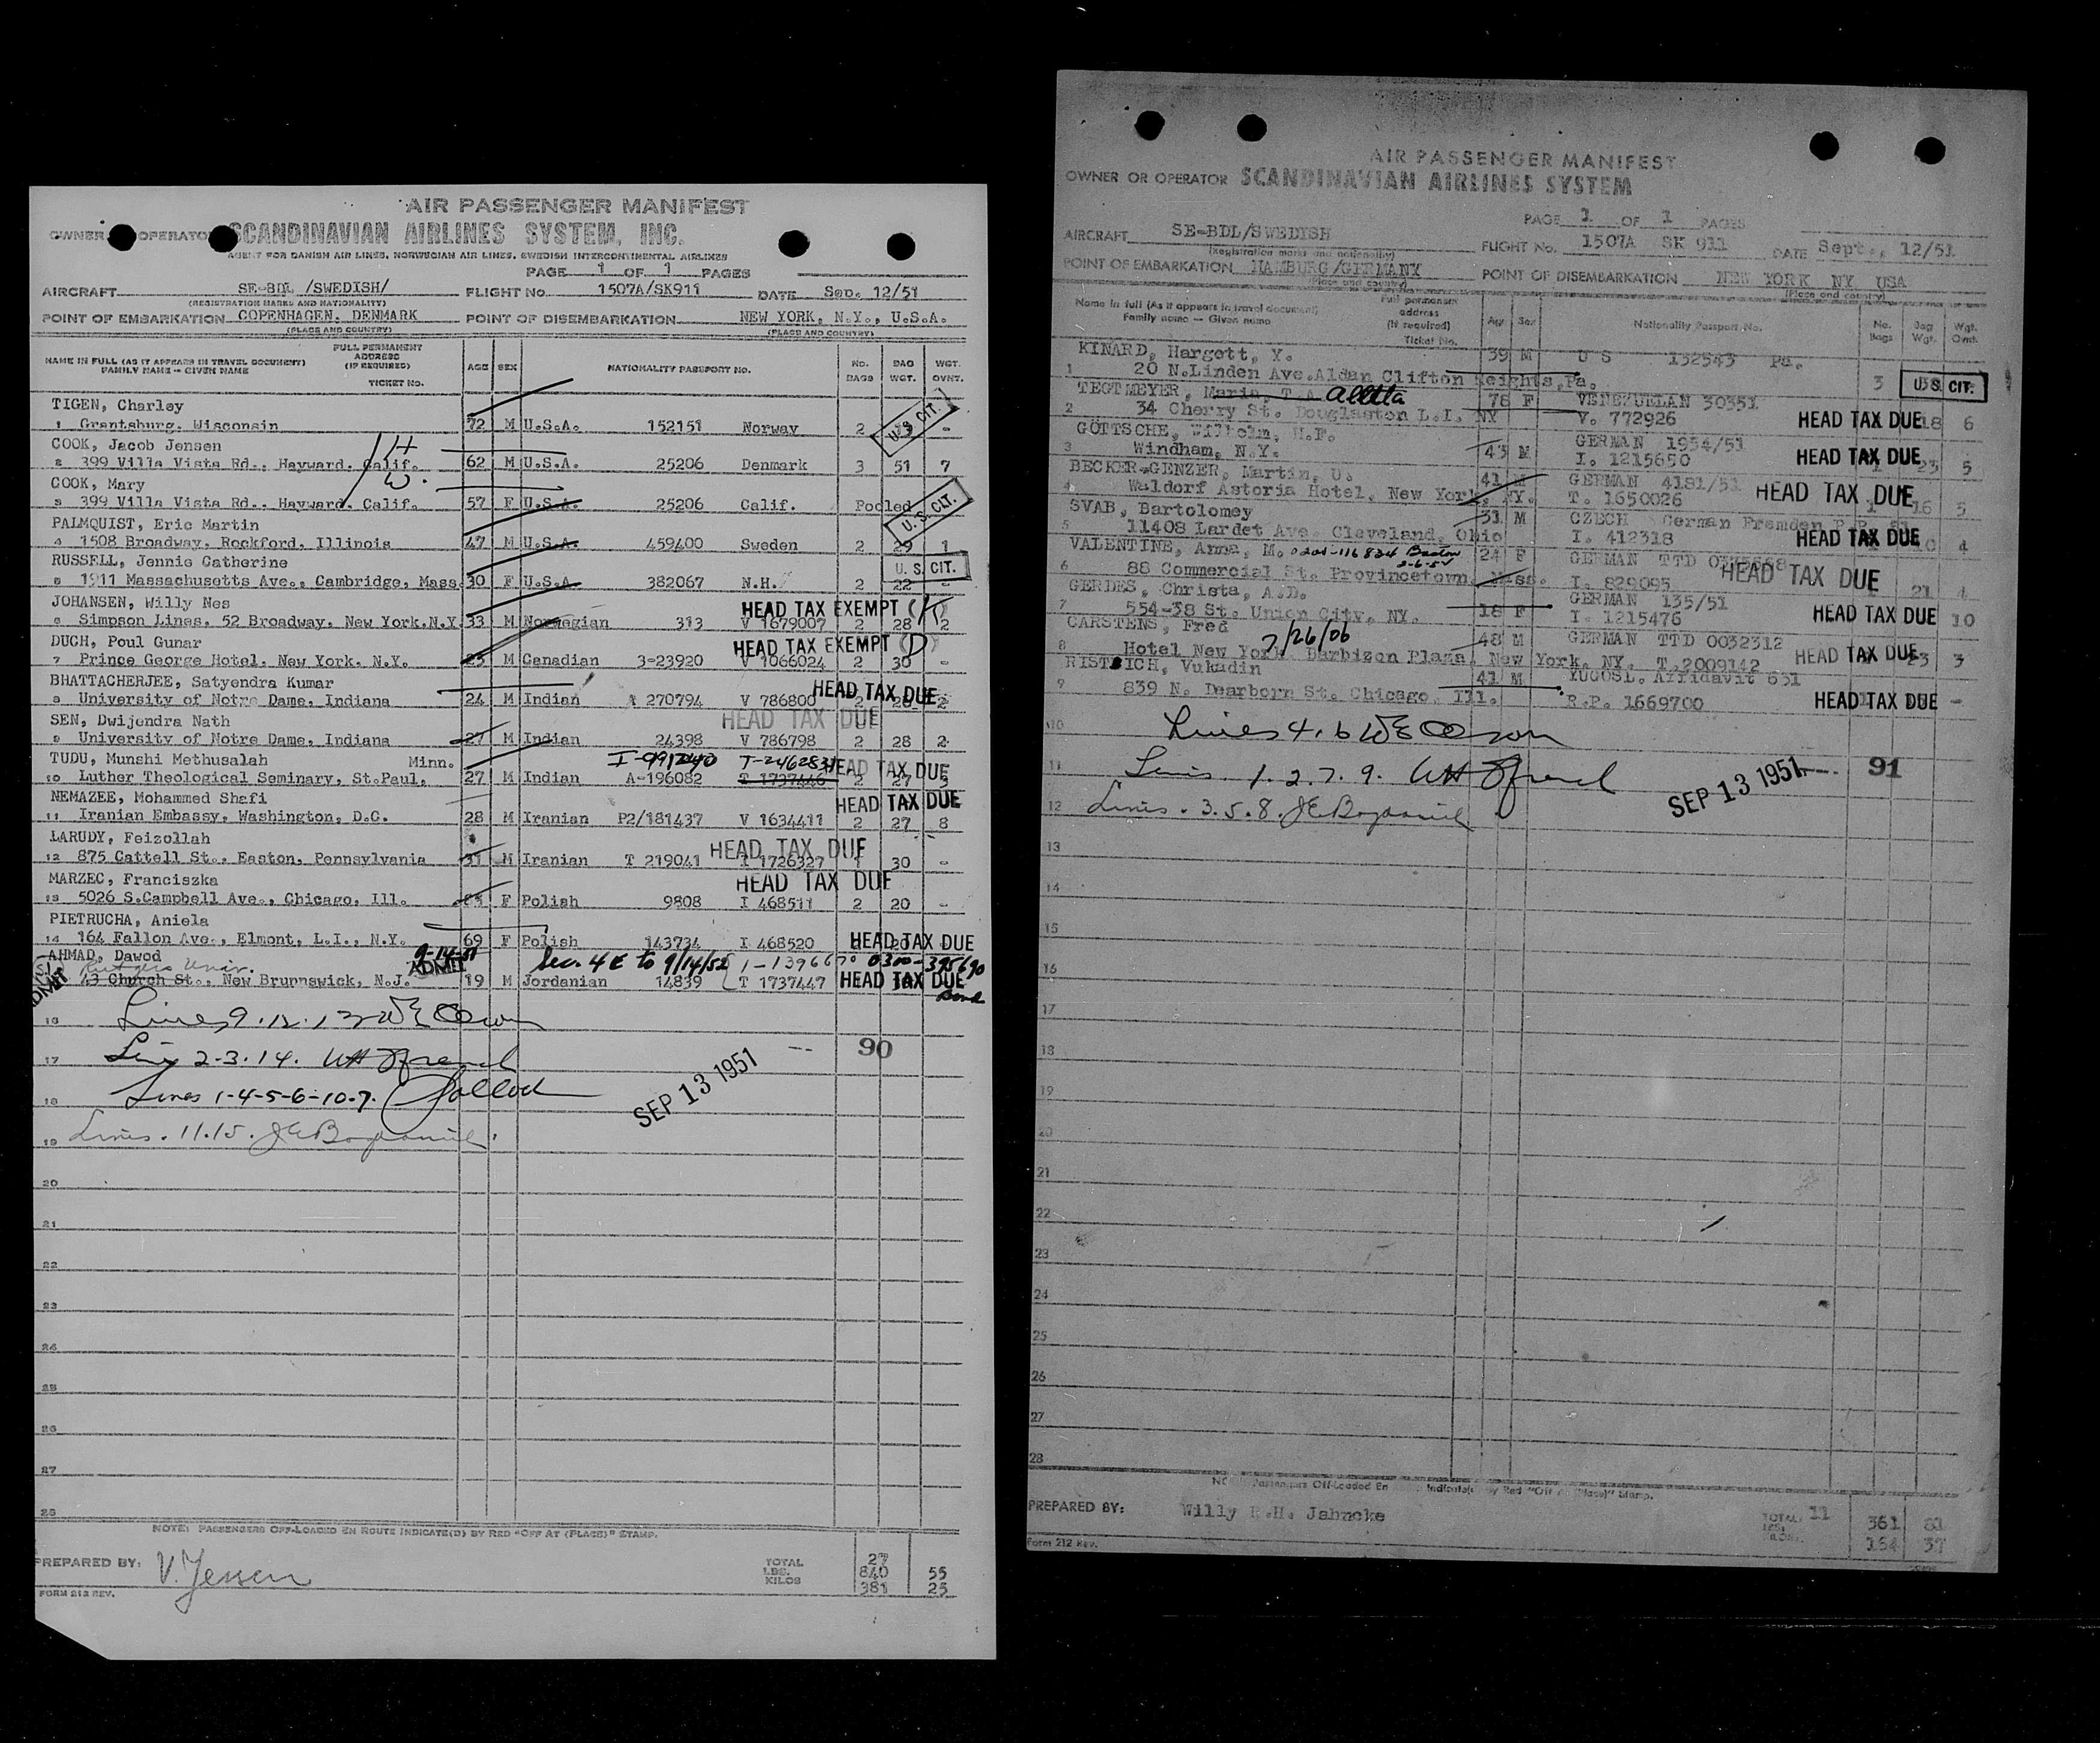 AIR PASSENGER MANIFEST
OWNER OPERATOR SCANDINAVIAN AIRLINES SYSTEM, INC.
AGENT FOR DANISH AIR LINES, NORWEGIAN AIR LINES, SWEDISH INTERCONTINENTAL AIRLINES
PAGE 1 OF 1 PAGES
AIRCRAFT SE-BDL /SWEDISH/ FLIGHT No. 1507A/SK911 DATE Sep. 12/51
(REGISTRATION MARKS AND NATIONALITY)
POINT OF EMBARKATION COPENHAGEN, DENMARK POINT OF DISEMBARKATION NEW YORK, N.Y., U.S.A.
(PLACE AND COUNTRY) (PLACE AND COUNTRY)
NAME IN FULL (AS IT APPEARS IN TRAVEL DOCUMENT) FAMILY NAME - GIVEN NAME FULL PERMANENT ADDRESS (IF REQUIRED) TICKET NO. AGE SEX NATIONALITY PASSPORT NO. NO. BAGS BAG WGT. WGT. OVNT.
TIGEN, Charley
1 Grantsburg, Wisconsin 72 M U.S.A. 152151 Norway 2 - U.S. CIT.
COOK, Jacob Jensen H
2 399 Villa Vista Rd., Hayward, Calif. 62 M U.S.A. 25206 Denmark 3 51 7
COOK, Mary W.
3 399 Villa Vista Rd., Hayward, Calif. 57 F U.S.A. 25206 Calif. Pooled U.S. CIT.
PALMQUIST, Eric Martin
4 1508 Broadway, Rockford, Illinois 47 M U.S.A. 459400 Sweden 2 29 1
RUSSELL, Jennie Catherine U. S. CIT.
5 1911 Massachusetts Ave., Cambridge, Mass. 30 F U.S.A. 382067 N.H. 2 22 -
JOHANSEN, Willy Nes HEAD TAX EXEMPT
6 Simpson Lines, 52 Broadway, New York, N.Y. 33 M Norwegian 313 V 1679007 2 28 2
DUCH, Poul Gunar HEAD TAX EXEMPT (D)
7 Prince George Hotel, New York, N.Y. 25 M Canadian 3-23920 V 1066024 2 30 -
BHATTACHERJEE, Satyendra Kumar HEAD TAX DUE
8 University of Notre Dame, Indiana 24 M Indian 270794 V 786800 2 28 2
SEN, Dwijendra Nath HEAD TAX DUE
9 University of Notre Dame, Indiana 27 M Indian 24398 V 786798 2 28 2
TUDU, Munshi Methusalah Minn. HEAD TAX DUE
10 Luther Theological Seminary, St.Paul, 27 M Indian A-196082 T 1737446 2 27 3
NEMAZEE, Mohammed Shafi HEAD TAX DUE
11 Iranian Embassy, Washington, D.C. 28 M Iranian P2/181437 V 1634411 2 27 8
LARUDY, Feizollah HEAD TAX DUE
12 875 Cattell St., Easton, Pennsylvania 31 M Iranian T 219041 I 1726327 1 30 -
MARZEC, Franciszka HEAD TAX DUE
13 5026 S.Campbell Ave., Chicago, Ill. F Polish 9808 I 468511 2 20 -
PIETRUCHA, Aniela
14 164 Fallon Ave., Elmont, L.I., N.Y. 69 F Polish 143734 I 468520 HEAD TAX DUE
AHMAD, Dawod 9-14-51 ADMIT Sec. 4E to 9/14/52 0300-395690
Rutgers Univ.
43 Church St., New Brunnswick, N.J. 19 M Jordanian 14839 T 1737447 HEAD TAX DUE Bond
16 Lines 9.12.13
17 Lines 2-3.14. 90
18 Lines 1-4-5-6-10-7. SEP 13 1951
19 Lines. 11.15.
20
21
22
23
24
25
26
27
28
NOTE: PASSENGERS OFF-LOADED EN ROUTE INDICATE(D) BY RED "OFF AT (PLACE)" STAMP.
PREPARED BY: V. Jensen TOTAL 27
LBS. 840 55
KILOS 381 25
FORM 212 REV.
AIR PASSENGER MANIFEST
OWNER OR OPERATOR SCANDINAVIAN AIRLINES SYSTEM
PAGE 1 OF 1 PAGES
AIRCRAFT SE-BDL/SWEDISH FLIGHT No. 1507A SK 911 DATE Sept., 12/51
(Registration marks and nationality)
POINT OF EMBARKATION HAMBURG/GERMANY POINT OF DISEMBARKATION NEW YORK NY USA
(Place and country) (Place and country)
Name in full (As it appears in travel document) Family name — Given name Full permanent address (If required) Ticket No. Age Sex Nationality Passport No. No. Bags Bag Wgt. Wgt. Ovnt.
KINARD, Hargett, Y. 39 M U S 132543 Pa.
1 20 N.Linden Ave.Aldan Clifton Heights,Pa. 3 U.S. CIT.
TEGTMEYER, Maria, T.A. Alletta 78 F VENEZUELAN 30351
2 34 Cherry St. Douglaston L.I. NY V. 772926 HEAD TAX DUE 18 6
GÖTTSCHE, Wilhelm, H.F. 43 M GERMAN 1954/51
3 Windham, N.Y. I. 1215650 HEAD TAX DUE 23 5
BECKER-GENZER, Martin, U. 41 M GERMAN 4181/51
4 Waldorf Astoria Hotel, New York, NY. T. 1650026 HEAD TAX DUE 16 5
SVAB, Bartolomey 31 M CZECH German Fremden P.P.
5 11408 Lardet Ave. Cleveland, Ohio I. 412318 HEAD TAX DUE 4
VALENTINE, Anna, M. 24 F GERMAN TTD
6 88 Commercial St. Provincetown, Mass. I. 829095 HEAD TAX DUE 21 4
GERDES, Christa, A.D. GERMAN 135/51
7 554-38 St. Union City, NY. 18 F I. 1215476 HEAD TAX DUE 10
CARSTENS, Fred 7/26/06 48 M GERMAN TTD 0032312
8 Hotel New York Barbizon Plaza, New York, NY. T.2009142 HEAD TAX DUE 23 3
RISTSICH, Vukadin 41 M YUGOSL. Affidavit 631
9 839 N. Dearborn St. Chicago, Ill. R.P. 1669700 HEAD TAX DUE -
10 Lines 4.6
11 Lines 1.2.7.9. 91
12 Lines. 3.5.8. SEP 13 1951
13
14
15
16
17
18
19
20
21
22
23
24
25
26
27
28
Passengers Off-Loaded En Indicate by Red "Off At (Place)" Stamp.
PREPARED BY: Willy R.H. Jahncke TOTAL: 11
361 81
164 37
Form 212 Rev.